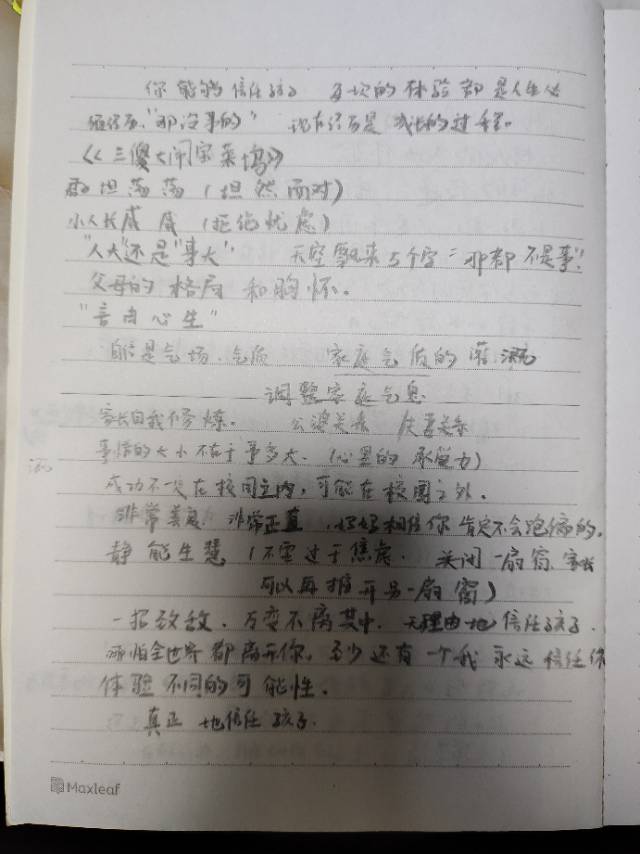 你能够信任孩子 每次的体验都是人生必
经历 "那没事的" 现在经历是成长的过程。
《三傻大闹宝莱坞》
君子坦荡荡(坦然面对)
小人长戚戚(拒绝忧虑)
"人大"还是"事大" 天空飘来5个字="那都不是事"。
父母的格局和胸怀。
"言由心生"
自信是气场、气质 家庭气质的
调整家庭气息
家长自我修炼。 公婆关系 夫妻关系
事情的大小不在于事多大。(心里的承受力)
成功不一定在校园之内,可能在校园之外。
非常善良 非常正直,妈妈相信你肯定不会跑偏的。
静能生慧(不要过于焦虑. 关闭一扇窗、家长
可以再推开另一扇窗)
一招致敌、万变不离其中、无理由地信任孩子.
哪怕全世界都离开你,至少还有一个我永远信任你
体验不同的可能性.
真正地信任孩子.
Maxleaf